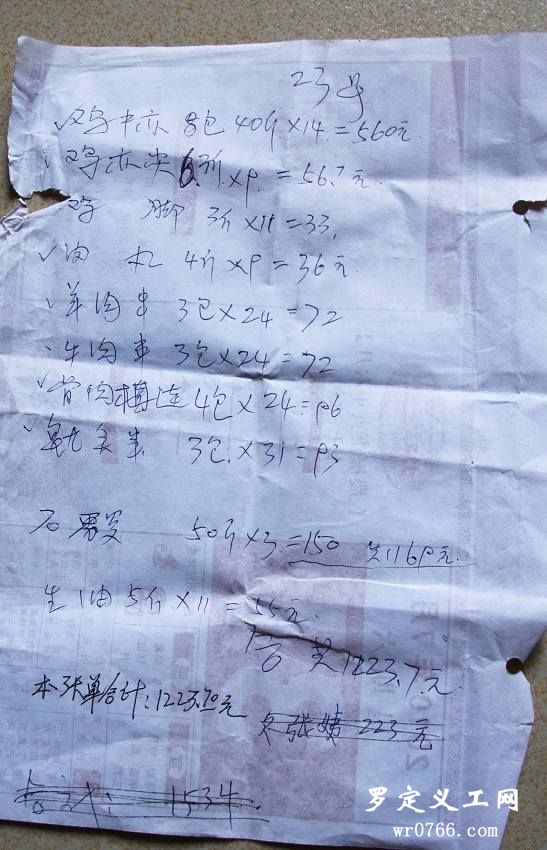 23号
鸡中亦 8包 40斤×14=560元
鸡亦尖 6.3斤×9=56.7元
鸡 脚 3斤×11=33
肉 丸 4斤×9=36元
羊肉串 3包×24=72
牛肉串 3包×24=72
骨肉相连 4包×24=96
鱿魚串 3包×31=93
石螺 50斤×3=150 共1169元
生油 5斤×11=55元
合共1223.7元
本张单合计:1223.70元
欠张姨 223元
合计: 1534
罗定义工网
wr0766.com